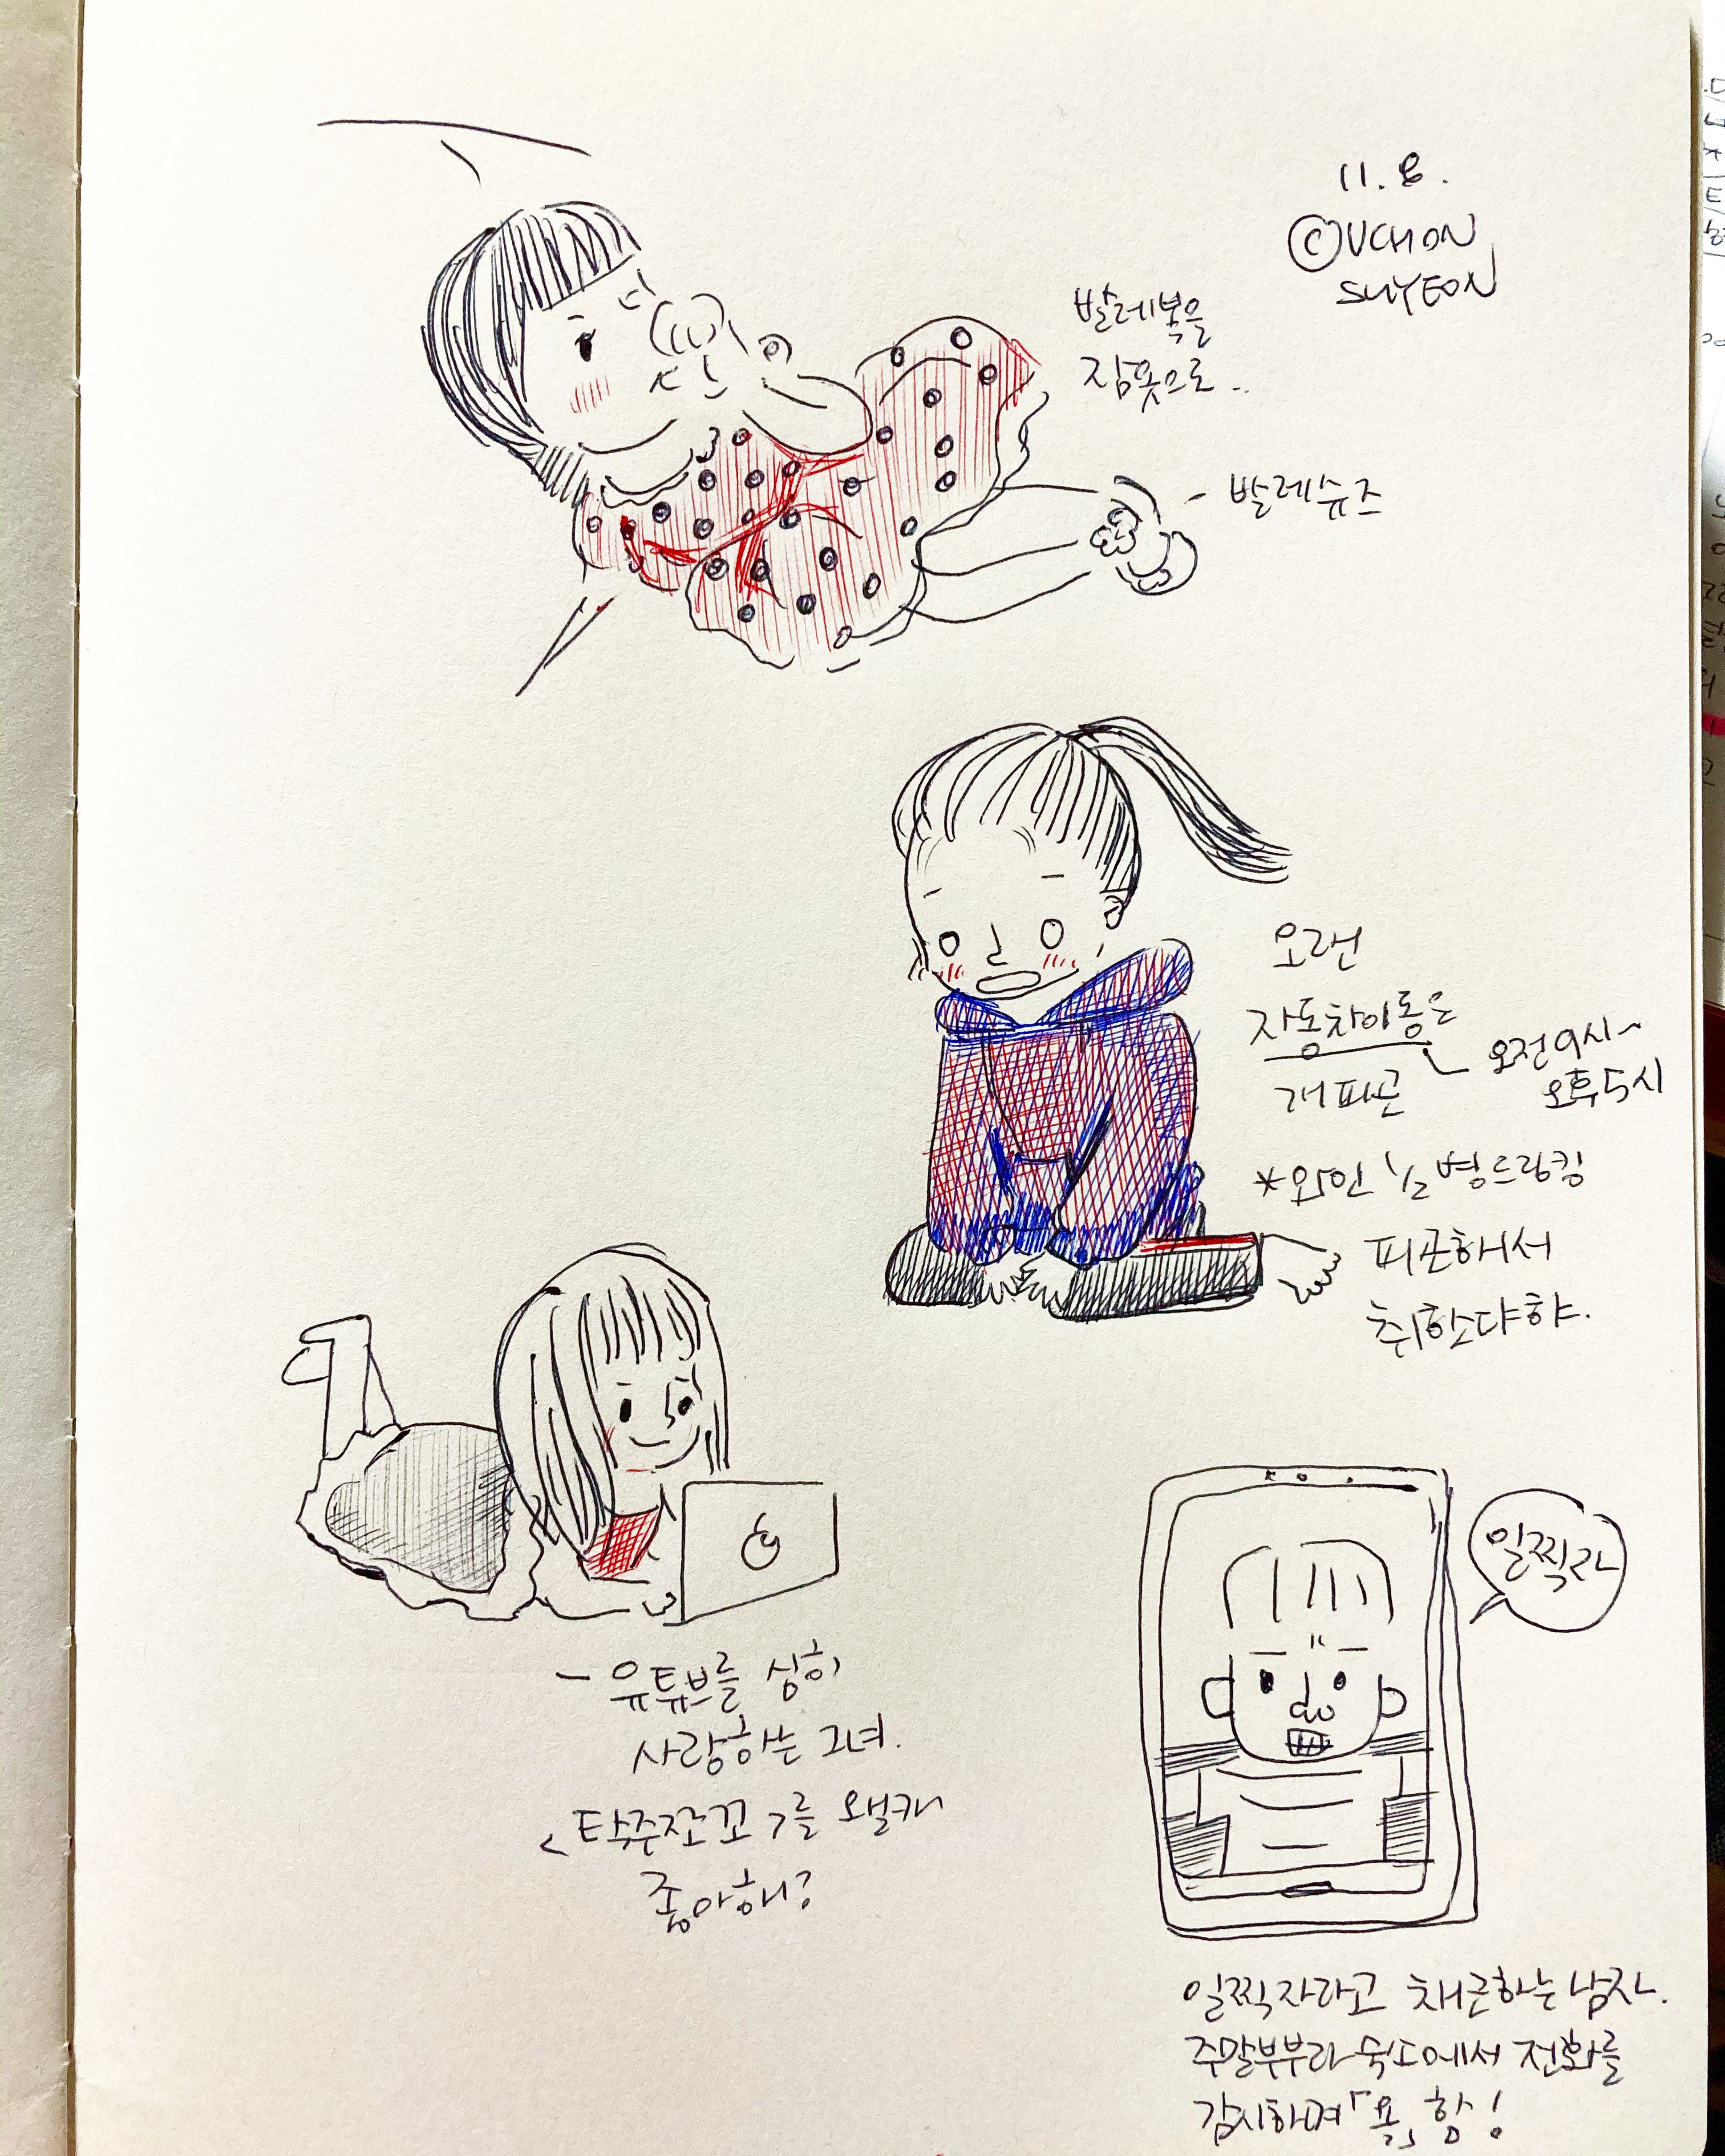 11.8.
ⓒUCHON
SUYEON
발레복을
잠옷으로..
- 발레슈즈
오랜
자동차이동은
오전9시~
오후5시
개피곤
*와인 1/2병드링킹
피곤해서
취한다햐.
- 유튜브를 심히
사랑하는 그녀.
를 왤캐
좋아해?
일찍자
일찍자라고 채근하는남자.
주말부부라 숙소에서 전화를
감시하며 「욕」함!